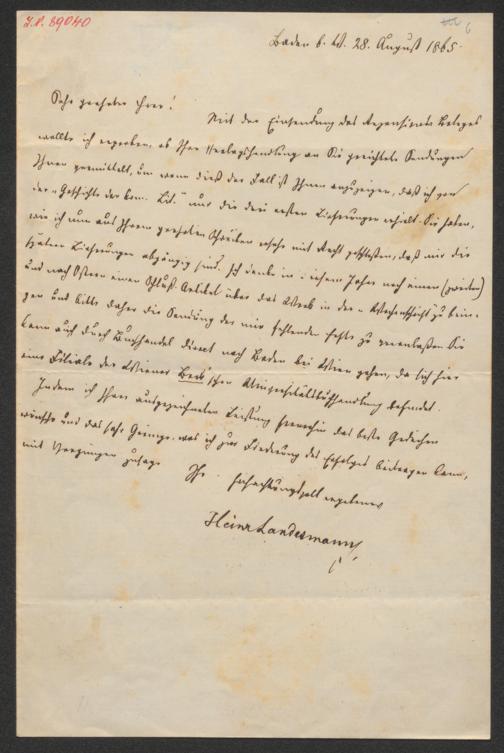 I.N. 89040
6
Baden b. W. 28. August 1865.
Sehr geehrter Herr!
Mit der Einsendung des Rezensions Beleges
wollte ich erproben, ob Ihre Verlagshandlung an Sie gerichtete Sendungen
Ihnen übermittelt, um wenn dieß der Fall ist Ihnen anzuzeigen, daß ich von
der „Geschichte der kom. Lit." nur die drei ersten Lieferungen erhielt. Sie haben,
wie ich nun aus Ihrem geehrten Schreiben ersehe mit Recht geschlossen, daß mir die
spätern Lieferungen abgängig sind. Ich denke in diesem Jahre noch einen (zweiten)
und nach Ostern einen Schluß-Artikel über das Werk in der „Wochenschrift" zu brin-
gen und bitte daher die Sendung der mir fehlenden Hefte zu veranlaßen. Sie
kann auch durch Buchhandel direct nach Baden bei Wien gehen, da sich hier
eine Filiale der Wiener Beck'schen Universitätsbuchhandlung befindet.
Indem ich Ihrer ausgezeichneten Leistung fernerhin das beste Gedeihen
wünsche und das sehr Geringe was ich zur Förderung des Erfolges beitragen kann,
mit Vergnügen zusage
Ihr hochachtungsvoll ergebener
Heinr Landesmann